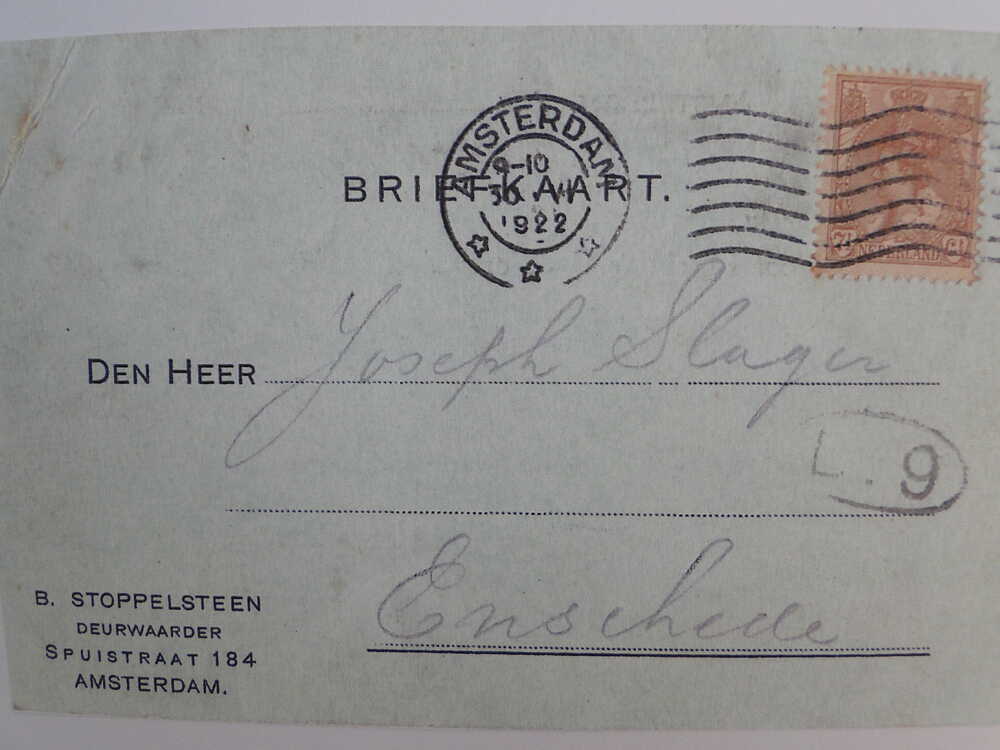 AMSTERDAM
9-10
1922
BRIEFKAART.
7½ NEDERLAND Ct
DEN HEER Joseph Slager
L. 9
Enschede
B. STOPPELSTEEN
DEURWAARDER
SPUISTRAAT 184
AMSTERDAM.